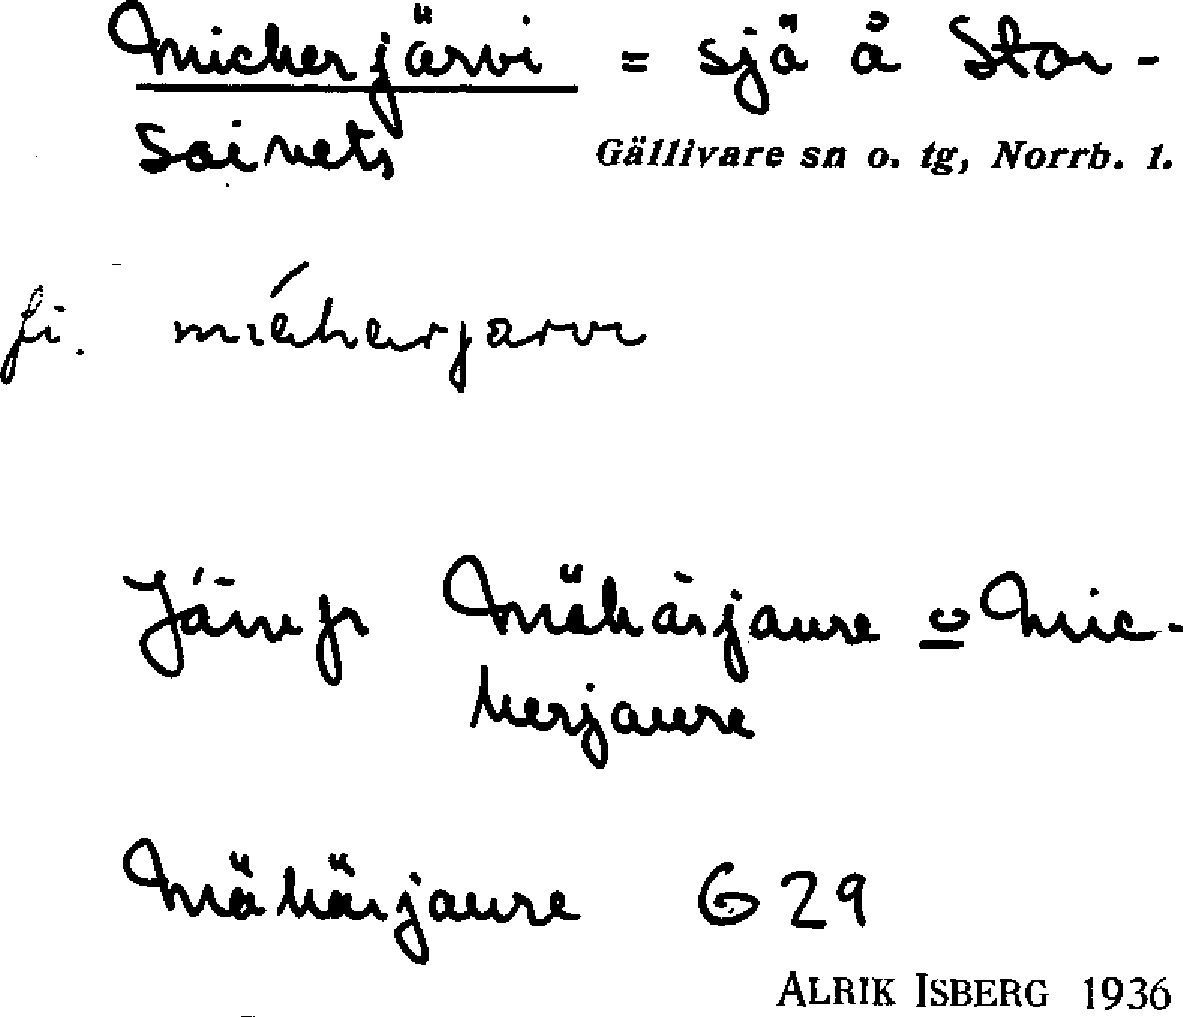 Micherjärvi = sjö å Stor-
Saivets Gällivare sn o. tg, Norrb. l.
fi. miéherjarvi
Jämfr Mähärjaure o Mic-
herjaure
Mähärjaure G 29
ALRIK ISBERG 1936